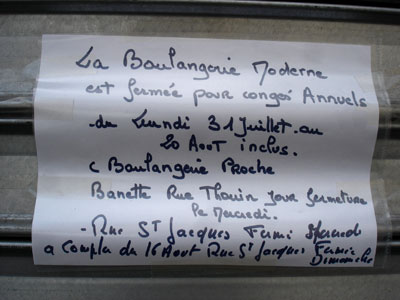 La Boulangerie Moderne
est fermée pour congés Annuels
du Lundi 31 Juillet au
20 Aout inclus.
Boulangerie Proche
Banette Rue Thouin jour fermeture
le Mercredi.
- Rue St Jacques Fermé
a Compter du 16 Aout Rue St Jacques Fermé
Dimanche